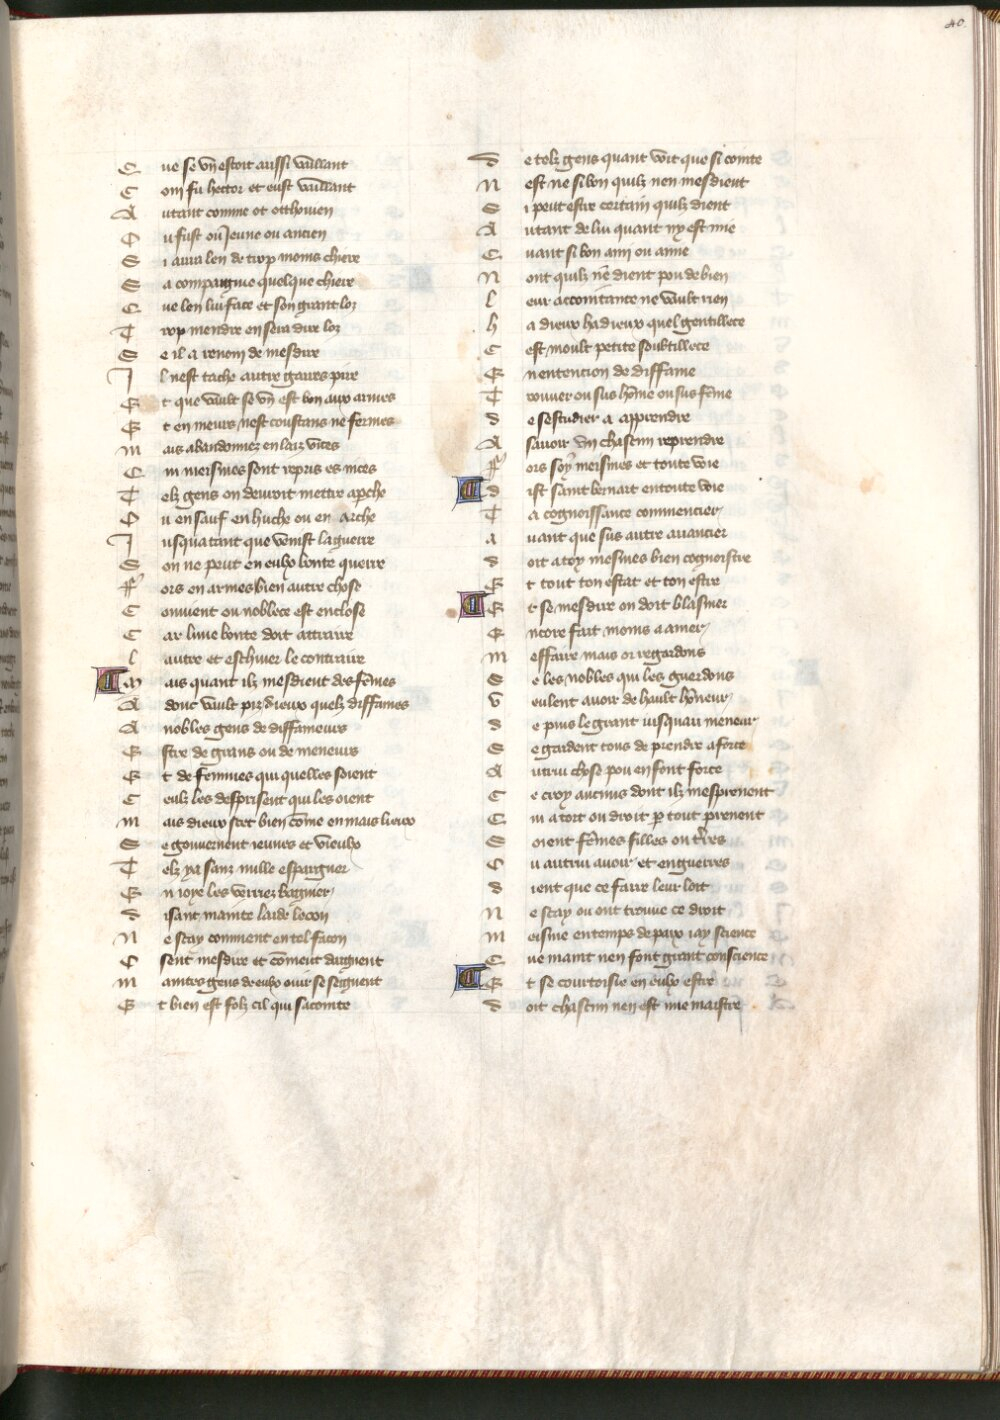 40
Que se vn estoit aussi vaillant
Com fu hector et eust vaillant
Autant comme ot otthouien
Ou fust ou Jeune ou ancien
Si aura len de trop moins chiere
Sa compaignie quelque chiere
Que len lui face et son grant loz
Trop mendre en sera dire loz
Se il a renom de mesdire
Il nest tache autre gaires pire
Et que vault se vn est bon aux armes
Et en meurs nest constans ne fermes
Mais abandonnez en laiz vices
Cui meismes sont repris es nices
Telz gens on deuroit mettre apche
Ou en sauf en huche ou en Arche
Jusqua tant que venist la guerre
Son ne peut en eulx bonte querre
Ffors en armes bien autre chose
Conuient ou noblece est enclose
Car lune bonte doit attraire
Lautre et eschiuer le contraire
Mais quant ilz mesdient des fẽmes
Adonc vault piz dieux quelz diffames
A nobles gens de diffameurs
Estre de grans ou de meneurs
Et de femmes qui quelles soient
Ceulz les desprisent qui les oient
Mais dieux scet bien cõme en mais lieux
Se gouuernent ieunes et vieulx
Telz ya sanz nulle espargner
En ioye les verriez baigner
Disant mainte laide lecon
Ne scay comment en tel facon
Osent mesdire et cõment daignent
Maintes gens deeulx ouir se seignent
Et bien est folz cil qui sacointe
De telz gens quant voit que si cointe
Nest ne si bon quilz nen mesdient
Si peut estre certain quilz dient
Autant de lui quant ny est mie
Quant si bon ami ou amie
Nont quilz nẽ dient pou de bien
Leur accointance ne vault rien
Ha dieux ha dieux quel gentillece
Cest moult petite soubtillece
En entencion de diffame
Trouuer ou sus hõme ou sus fẽme
De sestudier a apprendre
A sauoir vn chascun reprendre
Ffors soy meismes et toute voie
Dist saint bernart en toute voie
Ta cognoissance commencier
Auant que sus autre auancier
Doit a toy mesmes bien cognoistre
Et tout ton estat et ton estre
Et se mesdire on doit blasmer
Encore fait moins a amer
Meffaire mais or regardons
Se les nobles qui les guerdons
Veulent auoir de hault hõneur
De puis le grant iusquau meneur
Se gardent tous de prendre a force
Autrui chose pou en font force
Ce croy aucuns dont ilz mesprenent
Cui a tort ou droit p tout prenent
Soient fẽmes filles ou t̃res
Ou autrui auoir et en guerres
Dient que ce faire leur loit
Ne scay ou ont trouue ce droit
Meisme en temps de paix iay science
Que maint nen font grant conscience
Et se courtoisie en eulx estre
Doit chascun nen est mie maistre